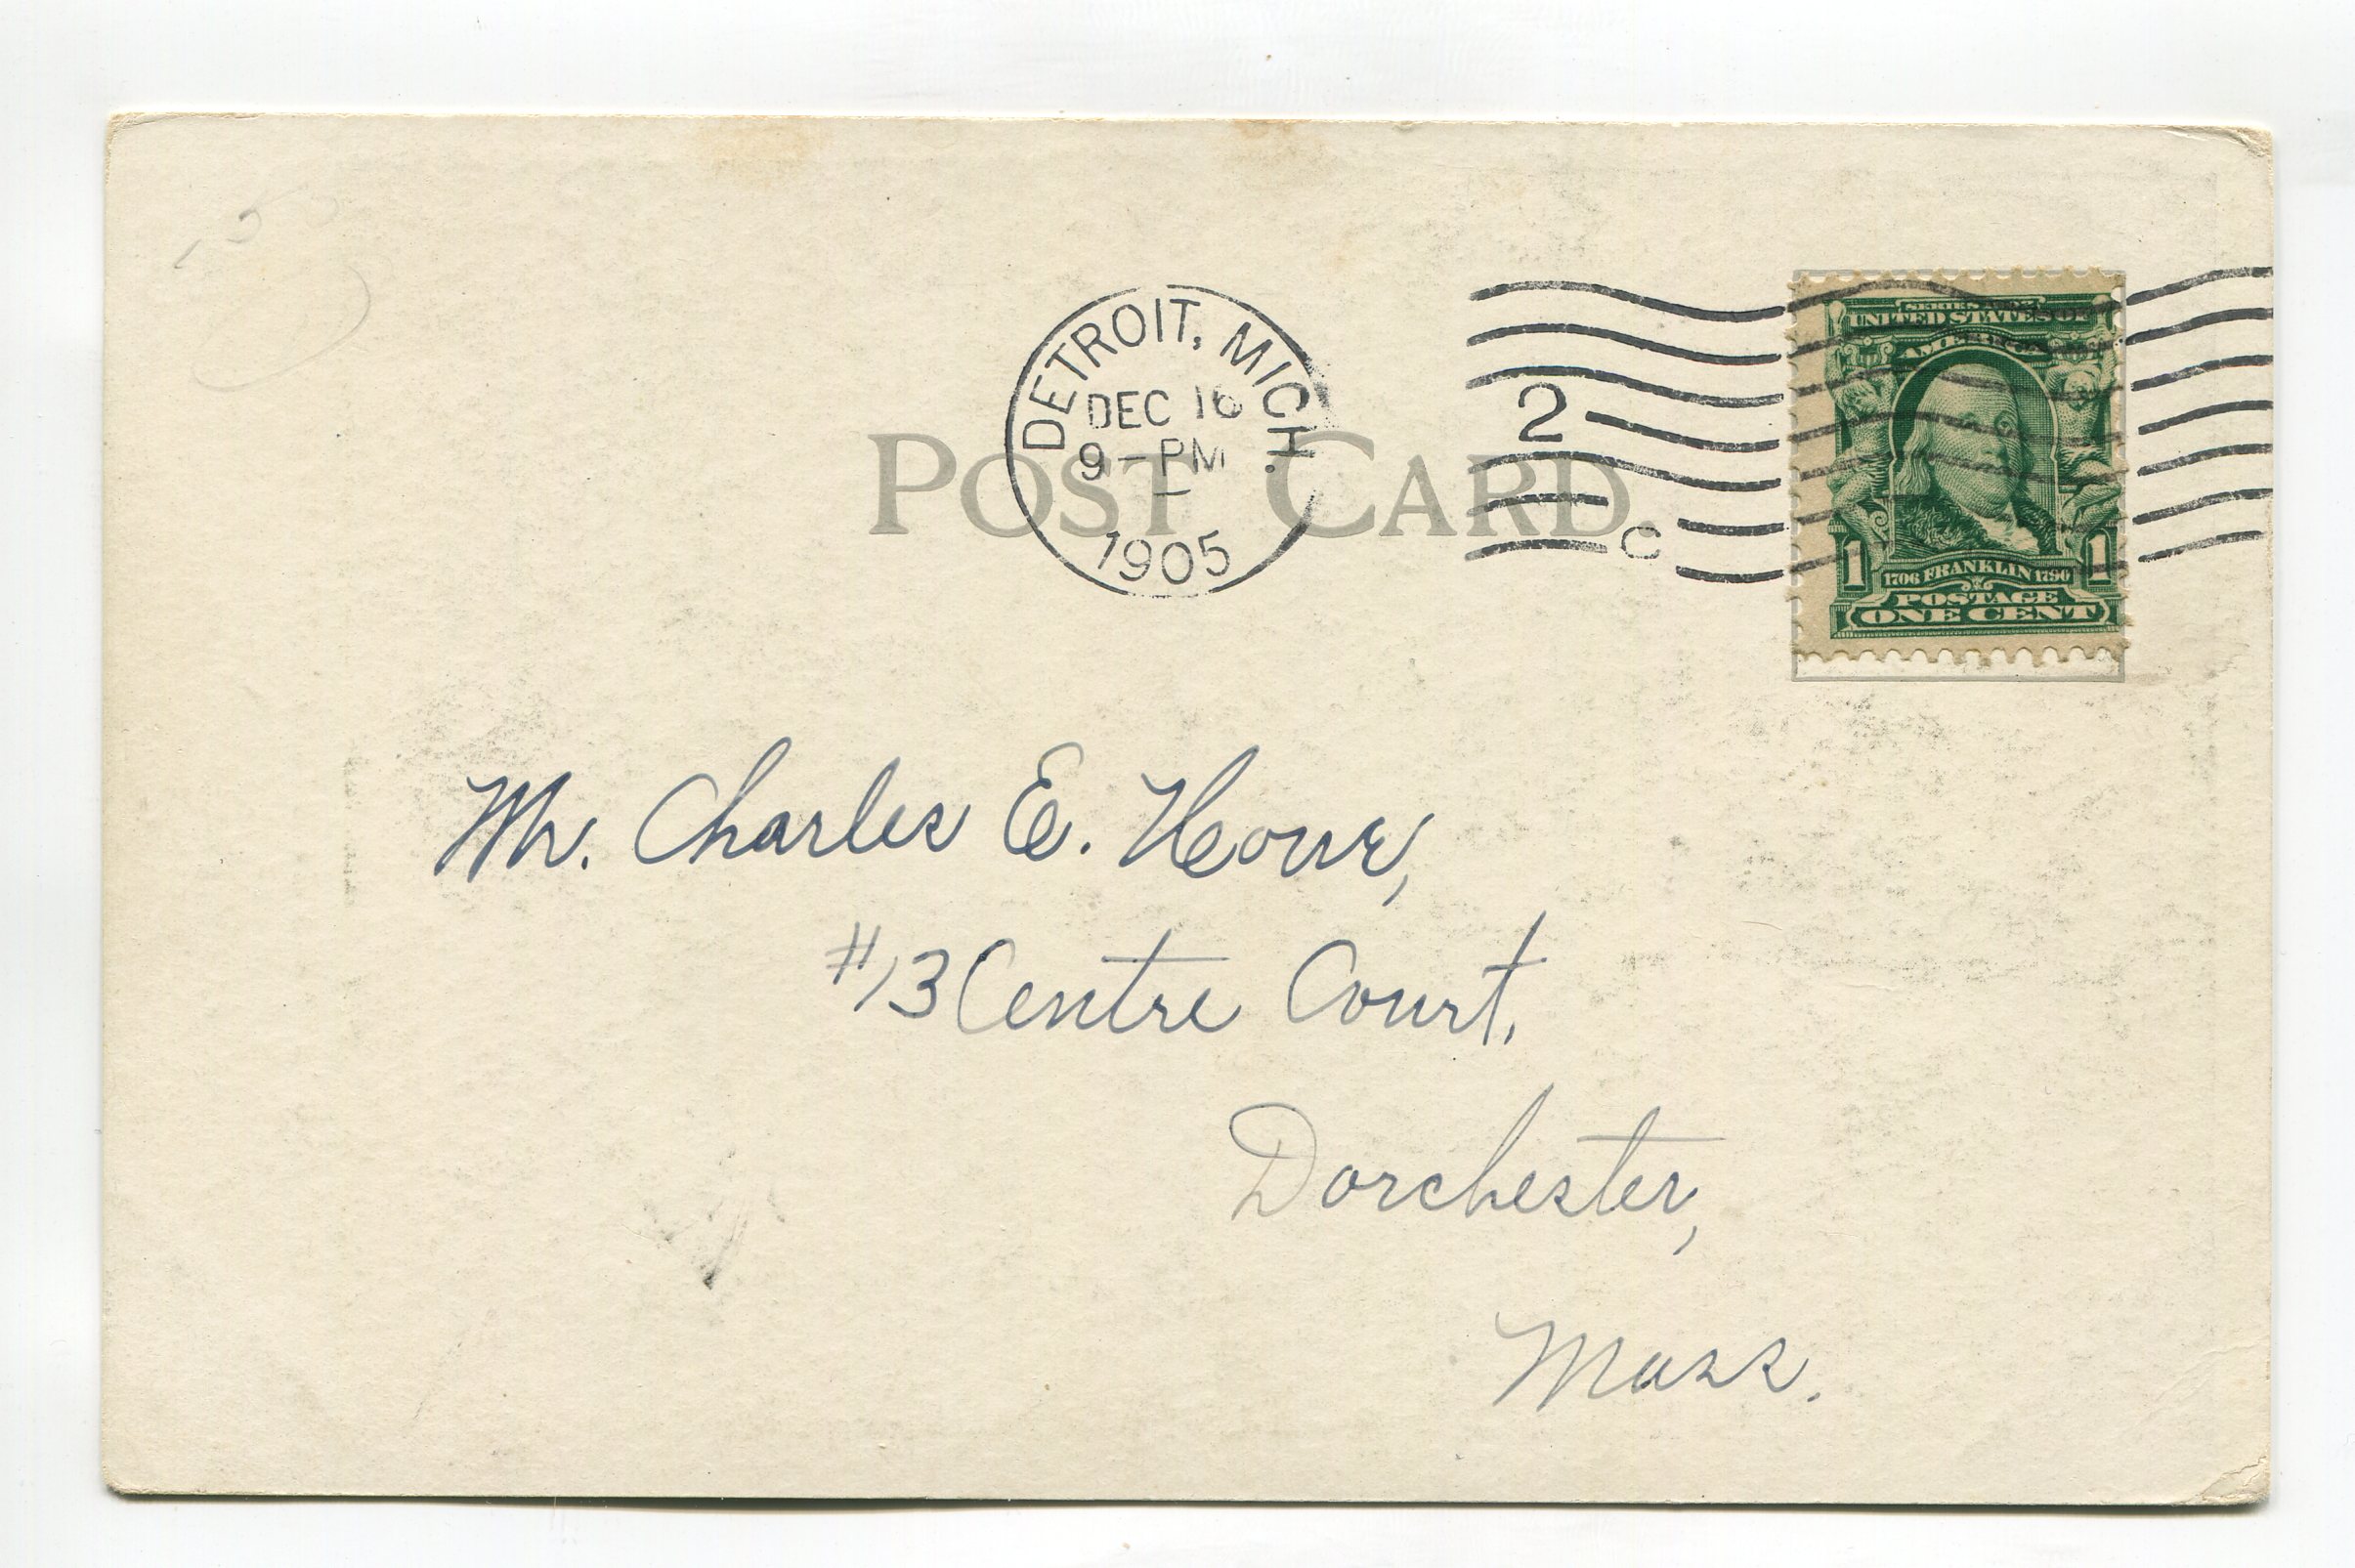 DETROIT, MICH.
DEC 16
9-PM
1905
2
C
POST CARD.
SERIES 1902
UNITED STATES OF
AMERICA
1 1706 FRANKLIN 1790 1
POSTAGE
ONE CENT
Mr. Charles E.
#13 Centre Court,
Dorchester,
Mass.